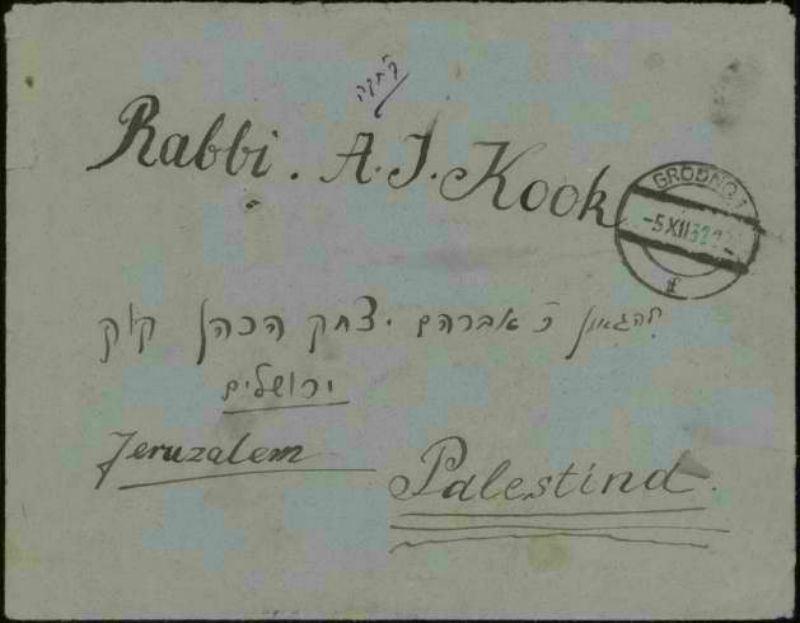 Rabbi. A. J. Kook
GRODNO 1
-5 XII
להגאון ר' אברהם יצחק הכהן קוק
ירושלים
Jeruzalem
Palestina.